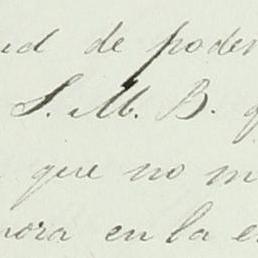 ud de poder
S. M. B. q
que no m
nora en la e